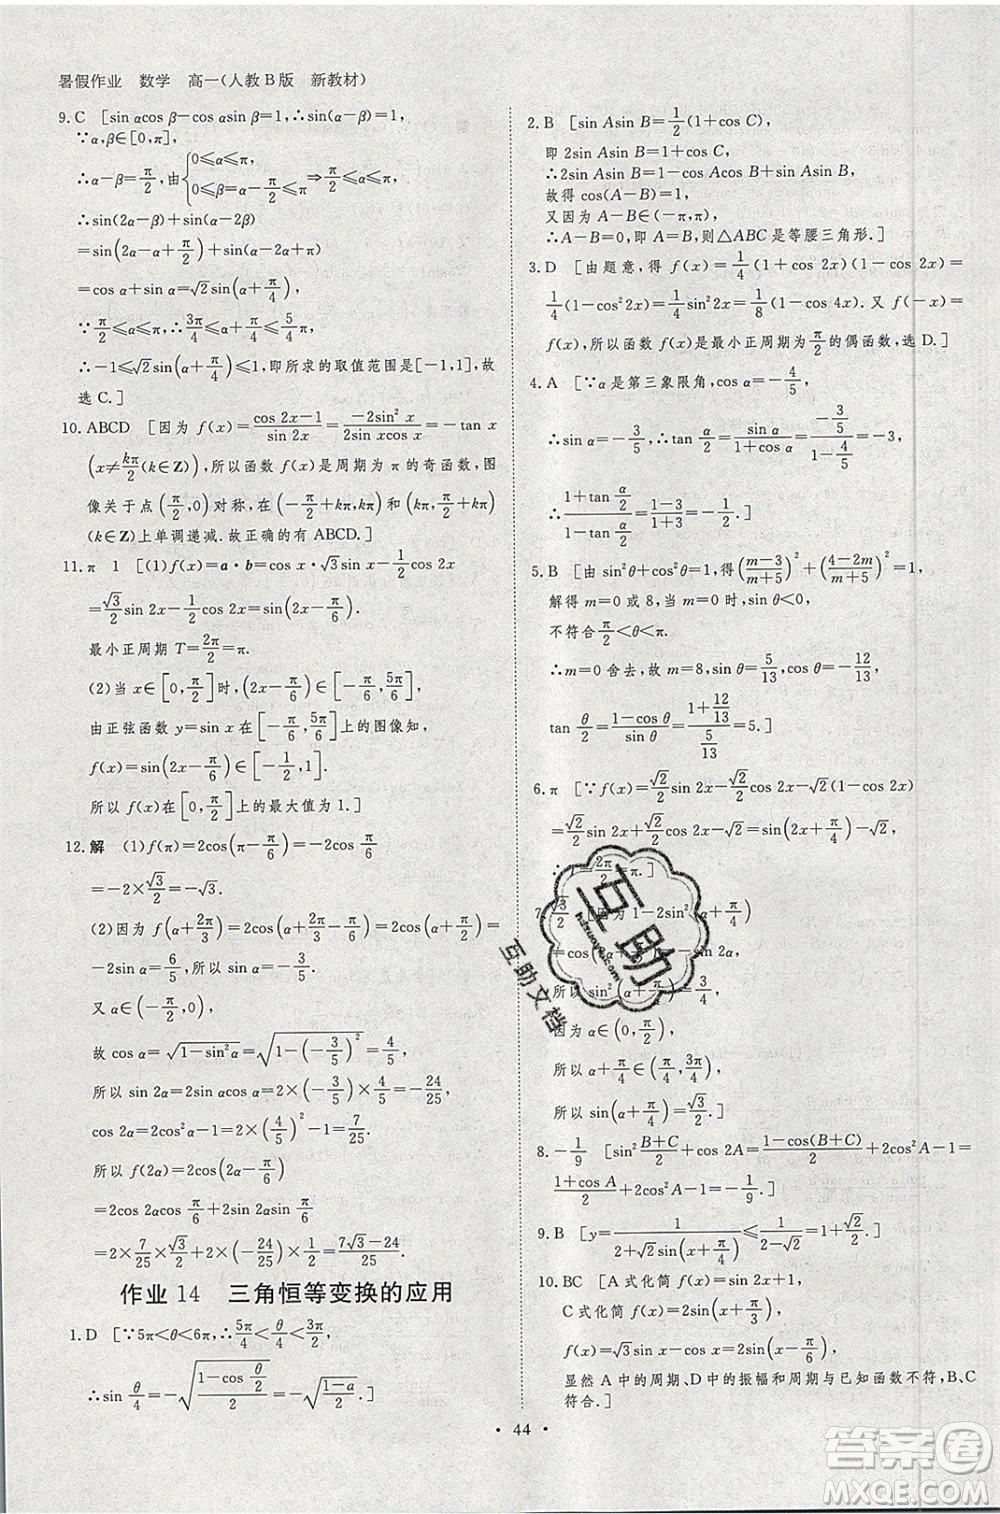 暑假作业 数学 高一(人教B版 新教材)
9. C [sin αcos β-cos αsin β=1,∴sin(α-β)=1,
∵α,β∈[0,π],
∴α-β=π/2,由{0≤α≤π 0≤β=α-π/2≤π⇒π/2≤α≤π,
∴sin(2α-β)+sin(α-2β)
=sin(α+π/2)+sin(π-α)
=cos α+sin α=√2sin(α+π/4)
∵π/2≤α≤π,∴3π/4≤α+π/4≤5/4π,
∴-1≤√2sin(α+π/4)≤1,即所求的取值范围是[-1,1],故
选C.]
10. ABCD [因为 f(x)=(cos 2x-1)/(sin 2x)=(-2sin² x)/(2sin xcos x)=-tan x
(x≠kπ/2(k∈Z)),所以函数 f(x)是周期为π的奇函数,图
像关于点(π/2,0)对称,在(π/4+kπ,π/2+kπ)和(π/2+kπ,π+kπ)
(k∈Z)上单调递减.故正确的有ABCD.]
11. π 1 [(1)f(x)=a·b=cos x·√3sin x-1/2cos 2x
=√3/2sin 2x-1/2cos 2x=sin(2x-π/6).
最小正周期 T=2π/2=π.
(2)当 x∈[0,π/2]时,(2x-π/6)∈[-π/6,5π/6],
由正弦函数 y=sin x 在[-π/6,5π/6]上的图像知,
f(x)=sin(2x-π/6)∈[-1/2,1].
所以 f(x)在[0,π/2]上的最大值为1.]
12. 解 (1)f(π)=2cos(π-π/6)=-2cos π/6
=-2×√3/2=-√3.
(2)因为 f(α+2π/3)=2cos(α+2π/3-π/6)=2cos(α+π/2)=
-2sin α=6/5,所以 sin α=-3/5.
又 α∈(-π/2,0),
故 cos α=√(1-sin²α)=√(1-(-3/5)²)=4/5,
所以 sin 2α=2sin αcos α=2×(-3/5)×4/5=-24/25,
cos 2α=2cos²α-1=2×(4/5)²-1=7/25.
所以 f(2α)=2cos(2α-π/6)
=2cos 2αcos π/6+2sin 2αsin π/6
=2×7/25×√3/2+2×(-24/25)×1/2=(7√3-24)/25.
作业 14 三角恒等变换的应用
1. D [∵5π<θ<6π,∴5π/4<θ/4<3π/2,
∴sin θ/4=-√((1-cos θ/2)/2)=-√((1-a)/2).]
2. B [sin Asin B=1/2(1+cos C),
即 2sin Asin B=1+cos C,
∴2sin Asin B=1-cos Acos B+sin Asin B,
故得 cos(A-B)=1,
又因为 A-B∈(-π,π),
∴A-B=0,即 A=B,则△ABC是等腰三角形.]
3. D [由题意,得 f(x)=1/4(1+cos 2x)(1-cos 2x)=
1/4(1-cos²2x)=1/4sin²2x=1/8(1-cos 4x).又 f(-x)=
f(x),所以函数 f(x)是最小正周期为π/2的偶函数,选D.]
4. A [∵α是第三象限角,cos α=-4/5,
∴sin α=-3/5,∴tan α/2=sin α/(1+cos α)=(-3/5)/(1-4/5)=-3,
∴(1+tan α/2)/(1-tan α/2)=(1-3)/(1+3)=-1/2.]
5. B [由 sin²θ+cos²θ=1,得((m-3)/(m+5))²+((4-2m)/(m+5))²=1,
解得 m=0或8,当 m=0时,sin θ<0,
不符合π/2<θ<π.
∴m=0舍去,故 m=8,sin θ=5/13,cos θ=-12/13,
tan θ/2=(1-cos θ)/sin θ=(1+12/13)/(5/13)=5.]
6. π [∵f(x)=√2/2sin 2x-√2/2cos 2x-√2(1-cos 2x)
=√2/2sin 2x+√2/2cos 2x-√2=sin(2x+π/4)-√2,
∴T=2π/2=π.]
7. √3/2 [因为 1-2sin²(α+π/4)
=cos(2α+π/2)=
所以 sin²(α+π/4)=3/4,
因为 α∈(0,π/4),
所以 α+π/4∈(π/4,π/2),
所以 sin(α+π/4)=√3/2.]
8. -1/9 [sin²(B+C)/2+cos 2A=(1-cos(B+C))/2+2cos²A-1=
(1+cos A)/2+2cos²A-1=-1/9.]
9. B [y=1/(2+√2sin(x+π/4))≤1/(2-√2)=1+√2/2.]
10. BC [A式化简 f(x)=1/2sin 2x,
C式化简 f(x)=2sin(x+π/3),
f(x)=√3sin x+cos x=2sin(x+π/6),
显然A中的周期、D中的振幅和已知函数不符,B、C
符合.]
·44·
互助
互助文档
答案圈
MXQE.COM